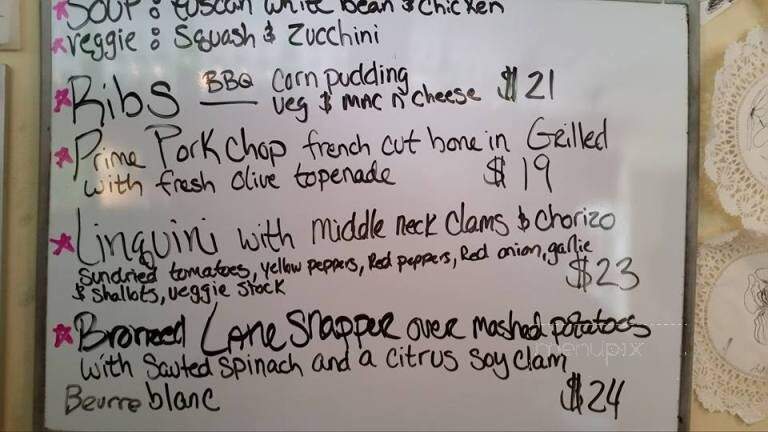 SOUP: tuscan white bean & chicken
veggie: Squash & Zucchini
Ribs BBQ corn pudding $21
veg & mac n cheese
Prime Pork Chop french cut bone in Grilled
with fresh olive topenade $19
Linquini with middle neck clams & chorizo
Sundried tomatoes, yellow peppers, Red peppers, Red onion, garlic
& shallots, veggie stock $23
Broned Lane Snapper over mashed potatoes
with Sauted Spinach and a citrus soy clam
Beurre blanc $24
menupix